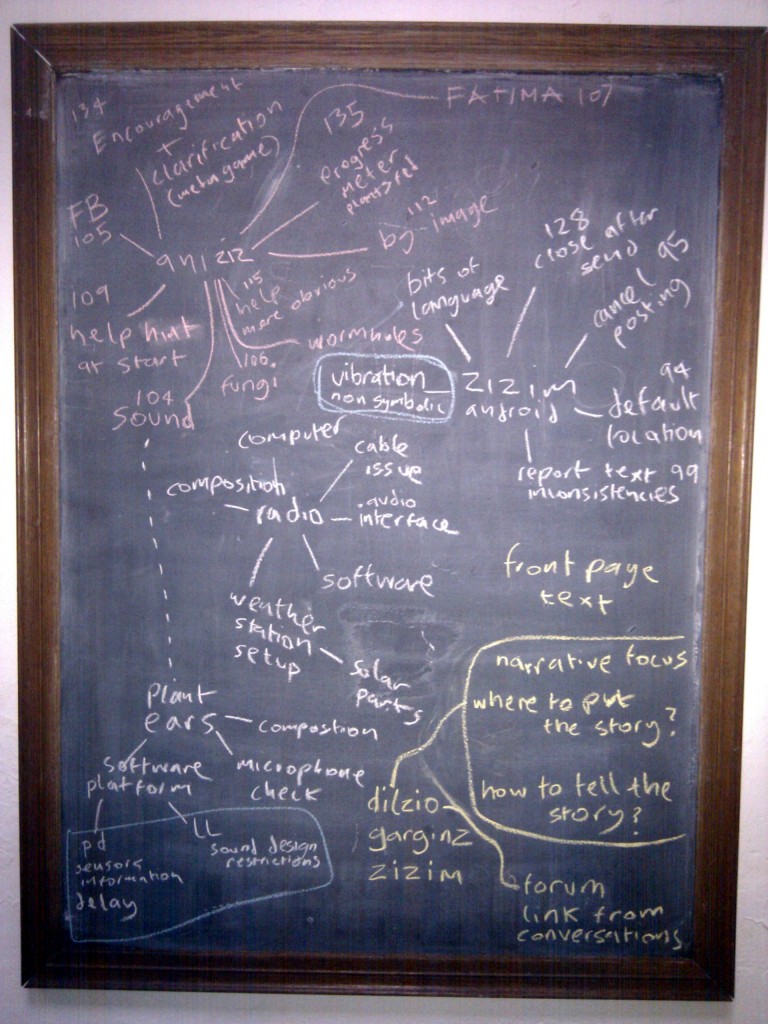 134
Encouragement
+
clarification
(metagame)
135
progress
meter
plants > rel
FATIMA 107
FB
105
aniziz
112
bg image
109
help hint
at start
115
help
more obvious
wormholes
106.
fungi
104
Sound
128
close after
send
95
cancel
posting
bits of
language
vibration
non symbolic
zizim
android
94
default
location
report text 99
inconsistencies
computer
cable
issue
composition
radio
audio
interface
software
weather
station
setup
solar
parts
front page
text
narrative focus
where to put
the story?
how to tell the
story?
plant
ears
compostion
microphone
check
software
platform
pd
sensors
information
delay
LL
sound design
restrictions
dilzio
garginz
zizim
forum
link from
conversations